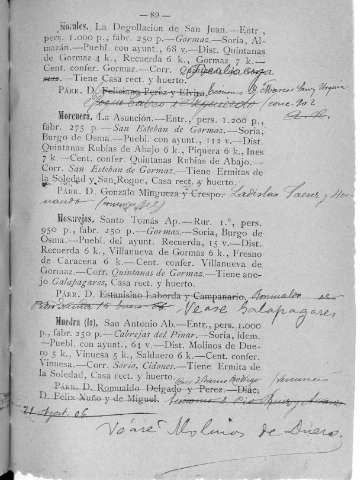 — 89 —
Morales. La Degollación de San Juan.—Entr.,
pers. 1.000 p., fabr. 250 p.—Gormaz.—Soria, Al-
mazán.—Puebl. con ayunt., 68 v.—Dist. Quintanas
de Gormaz 4 k., Recuerda 6 k., Gormaz 7 k.—
Cent. confer. Gormaz.—Corr.
—Tiene Casa rect. y huerto.
PÁRR. D. Feliciano Pérez y Elvira,
Morcuera, La Asunción.—Entr., pers. 1.200 p.,
fabr. 275 p.—San Esteban de Gormaz.—Soria,
Burgo de Osma.—Puebl. con ayunt., 112 v.—Dist.
Quintanas Rubias de Abajo 6 k., Piquera 6 k., Ines
7 k.—Cent. confer. Quintanas Rubias de Abajo.—
Corr. San Esteban de Gormaz.—Tiene Ermitas de
la Soledad y San Roque, Casa rect. y huerto.
PÁRR. D. Gonzalo Mingueza y Crespo. Ladislao Saenz y Her
nando
Mosarejos. Santo Tomás Ap.—Rur. 1.ª, pers.
950 p., fabr. 250 p.—Gormaz.—Soria, Burgo de
Osma.—Puebl. del ayunt. Recuerda, 15 v.—Dist.
Recuerda 6 k., Villanueva de Gormaz 6 k., Fresno
de Caracena 6 k.—Cent. confer. Villanueva de
Gormaz.—Corr. Quintanas de Gormaz.—Tiene ane-
jo Galapagares, Casa rect. y huerto.
PÁRR. D. Estanislao Laborda y Campanario, Romualdo de
Vease Galapagares
Muedra (la), San Antonio Ab.—Entr., pers. 1.000
p., fabr. 250 p.—Cabrejas del Pinar.—Soria, ídem.
—Puebl. con ayunt., 61 v.—Dist. Molinos de Due-
ro 5 k., Vinuesa 5 k., Salduero 6 k.—Cent. confer.
Vinuesa.—Corr. Soria, Cidones.—Tiene Ermita de
la Soledad, Casa rect. y huerto.
PÁRR. D. Romualdo Delgado y Pérez.—Diác.
D. Felix Nuño y de Miguel.
21 Agost. 06
Véase Molinos de Duero.